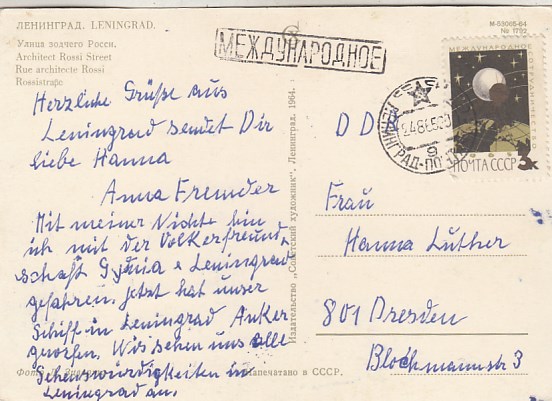 ЛЕНИНГРАД. LENINGRAD.
Улица зодчего Росси.
Architect Rossi Street
Rue architecte Rossi
Rossistraße
М-53005-64
№ 1792
МЕЖДУНАРОДНОЕ
МЕЖДУНАРОДНОЕ
ПОЧТА СССР
3к
Herzliche Grüße aus
Leningrad sendet Dir
liebe Hanna
Anna Fremder
Mit meiner Nichte bin
ich mit der Völkerfreund-
schaft Gydnia & Leningrad
gefahren. jetzt hat unser
Schiff in Leningrad Anker
geworfen. Wir sehen uns alle
Sehenswürdigkeiten in
Leningrad an.
Издательство „Советский художник". Ленинград. 1964.
DDR
Frau
Hanna Luther
801 Dresden
Blochmannstr 3
Фото
Напечатано в СССР.